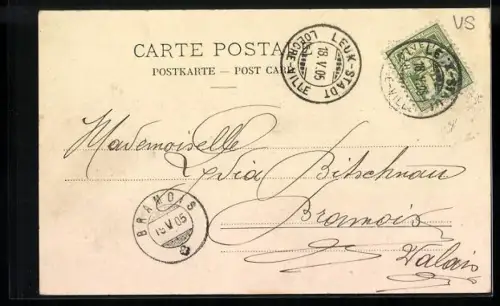 VS
CARTE POSTA
POSTKARTE — POST CAR
LEUK-STADT
18.V.05
LOECHE-VILLE
LEUK-ST
E-VILLE
Mademoiselle
Lydia Bitschnau
Bramois
Valais
BRAMOIS
19.V.05